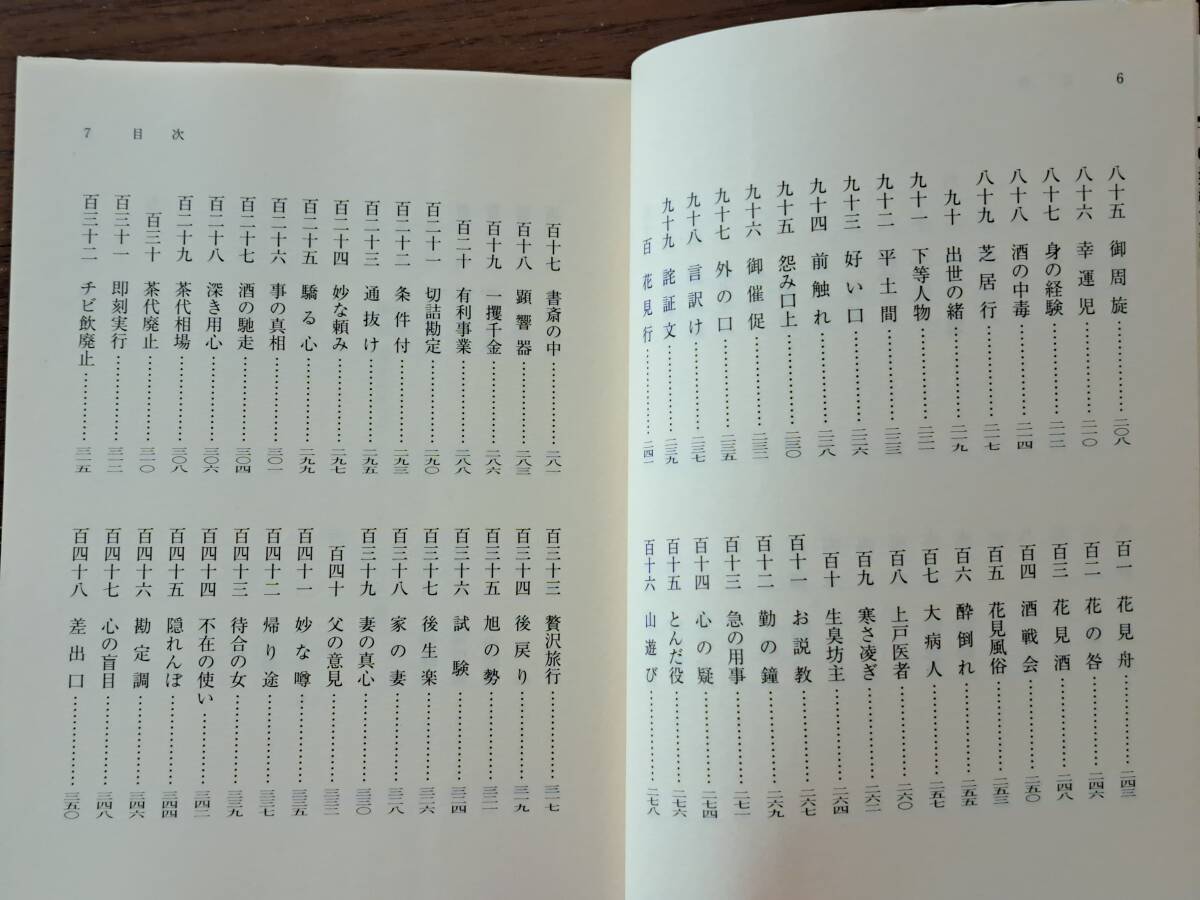 6
八十五 御周旋…………二〇八
八十六 幸運児…………二一〇
八十七 身の経験…………二一二
八十八 酒の中毒…………二一四
八十九 芝居行…………二一七
九十 出世の緒…………二一九
九十一 下等人物…………二二一
九十二 平土間…………二二三
九十三 好い口…………二二六
九十四 前触れ…………二二八
九十五 怨み口上…………二三〇
九十六 御催促…………二三二
九十七 外の口…………二三五
九十八 言訳け…………二三七
九十九 詫証文…………二三九
百 花見行…………二四一
百一 花見舟…………二四三
百二 花の咎…………二四六
百三 花見酒…………二四八
百四 酒戦会…………二五〇
百五 花見風俗…………二五三
百六 酔倒れ…………二五五
百七 大病人…………二五七
百八 上戸医者…………二六〇
百九 寒さ凌ぎ…………二六二
百十 生臭坊主…………二六四
百十一 お説教…………二六七
百十二 勤の鐘…………二六九
百十三 急の用事…………二七一
百十四 心の疑…………二七四
百十五 とんだ役…………二七六
百十六 山遊び…………二七八
7 目次
百十七 書斎の中…………二八一
百十八 顕響器…………二八三
百十九 一攫千金…………二八六
百二十 有利事業…………二八八
百二十一 切詰勘定…………二九〇
百二十二 条件付…………二九三
百二十三 通抜け…………二九五
百二十四 妙な頼み…………二九七
百二十五 驕る心…………二九九
百二十六 事の真相…………三〇一
百二十七 酒の馳走…………三〇四
百二十八 深き用心…………三〇六
百二十九 茶代相場…………三〇八
百三十 茶代廃止…………三一〇
百三十一 即刻実行…………三一二
百三十二 チビ飲廃止…………三一五
百三十三 贅沢旅行…………三一七
百三十四 後戻り…………三一九
百三十五 旭の勢…………三二一
百三十六 試験…………三二四
百三十七 後生楽…………三二六
百三十八 家の妻…………三二八
百三十九 妻の真心…………三三〇
百四十 父の意見…………三三二
百四十一 妙な噂…………三三五
百四十二 帰り途…………三三七
百四十三 待合の女…………三三九
百四十四 不在の使い…………三四二
百四十五 隠れんぼ…………三四四
百四十六 勘定調…………三四六
百四十七 心の盲目…………三四八
百四十八 差出口…………三五〇